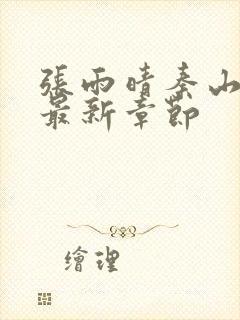 張雨晴秦山
最新章節
繪理